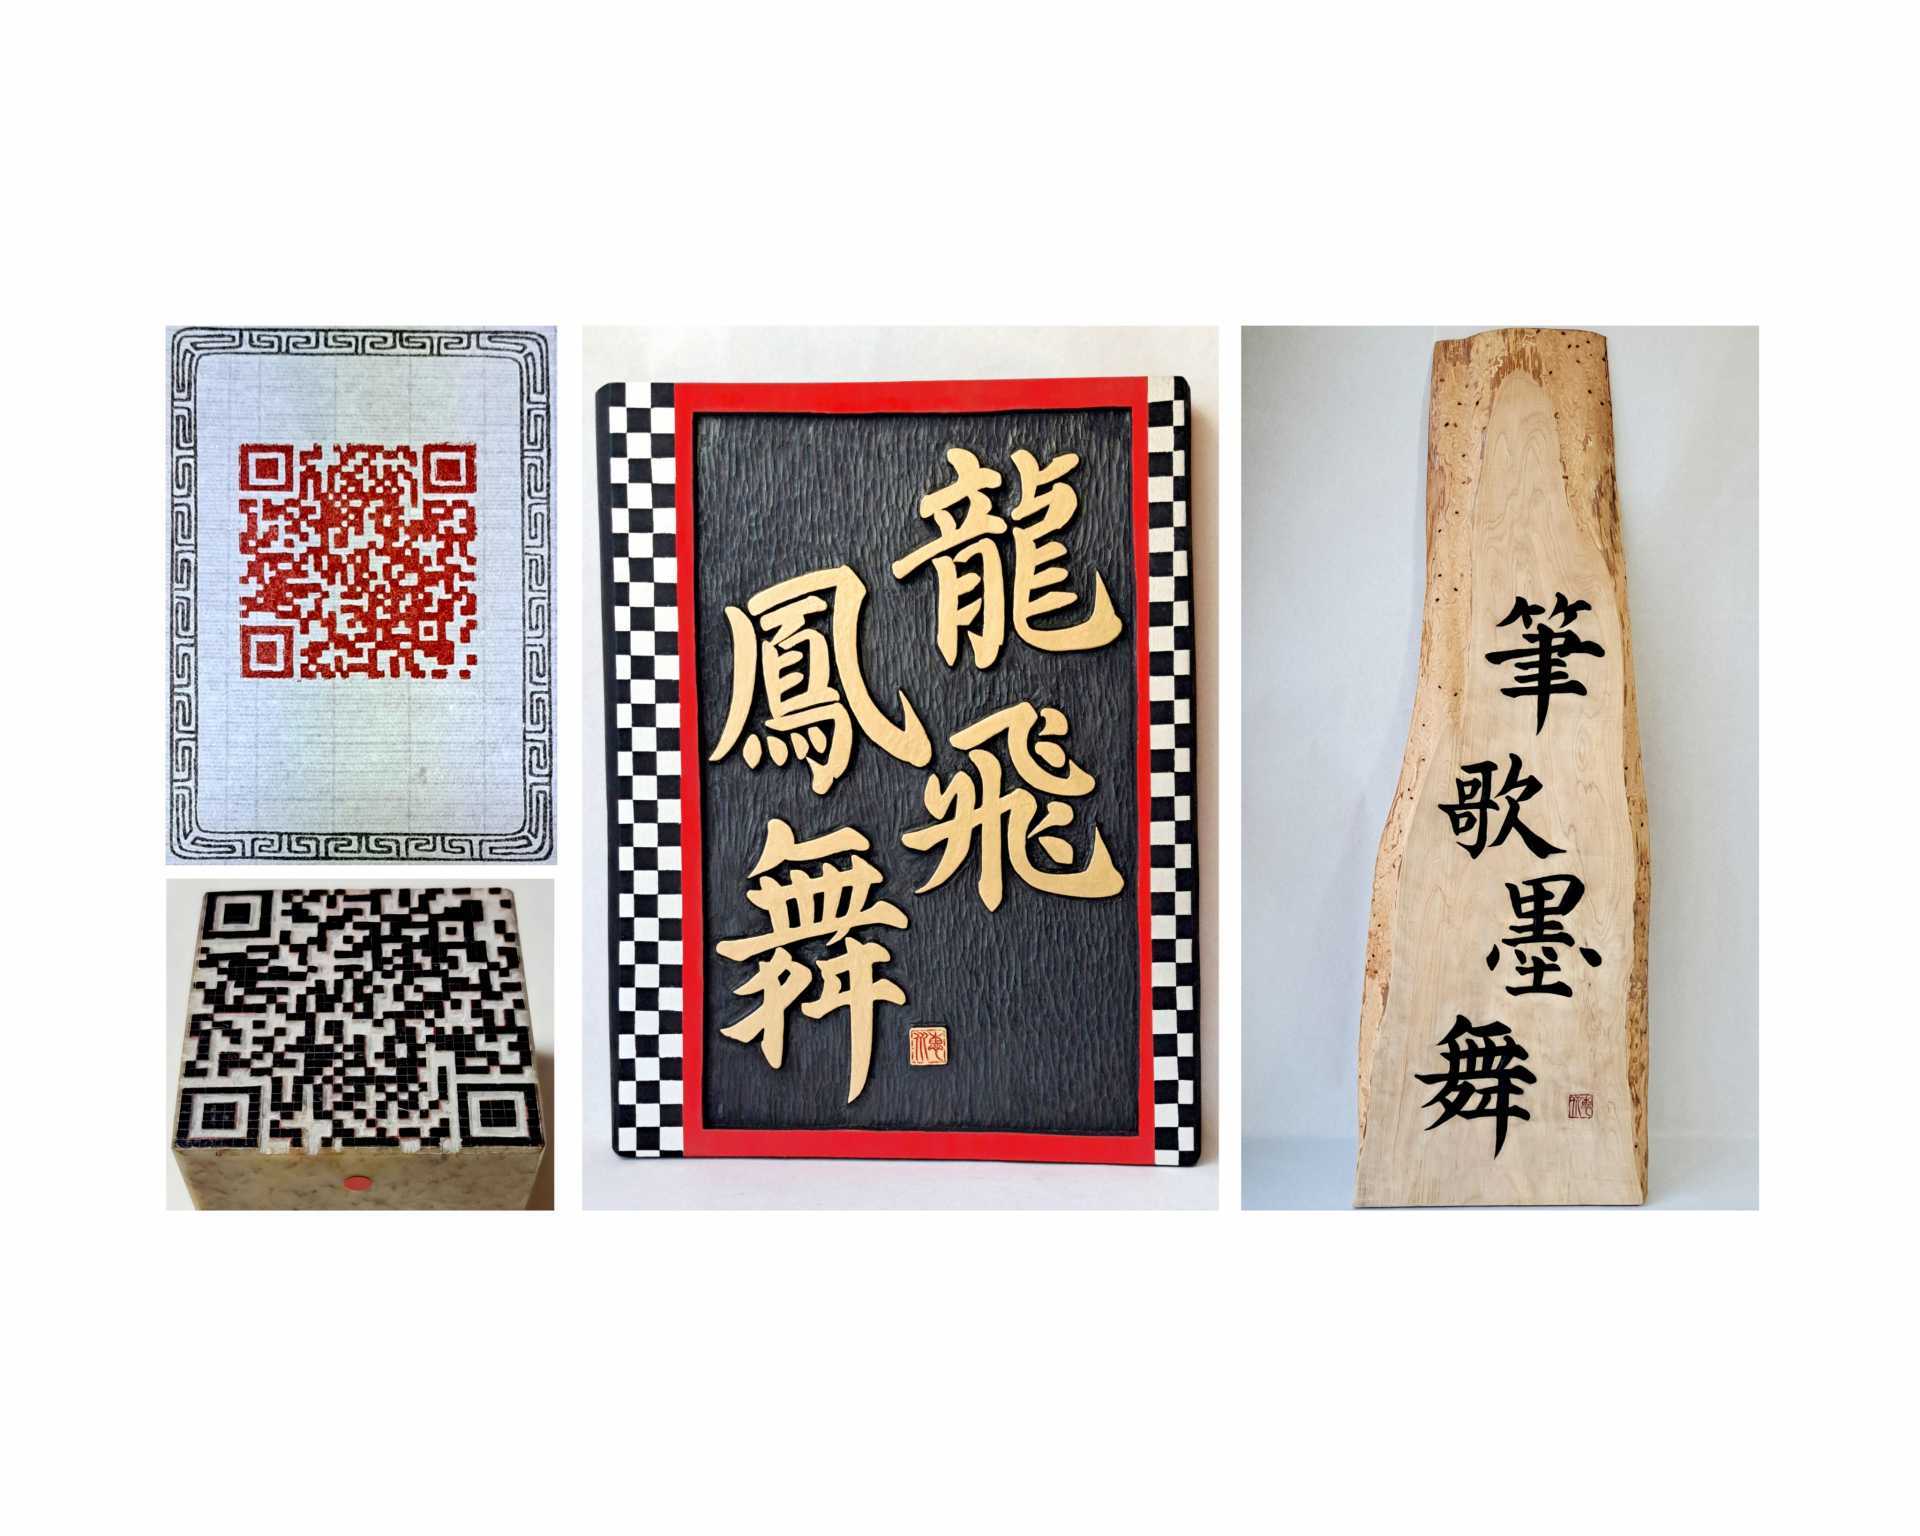 龍飛
鳳舞
筆歌墨舞